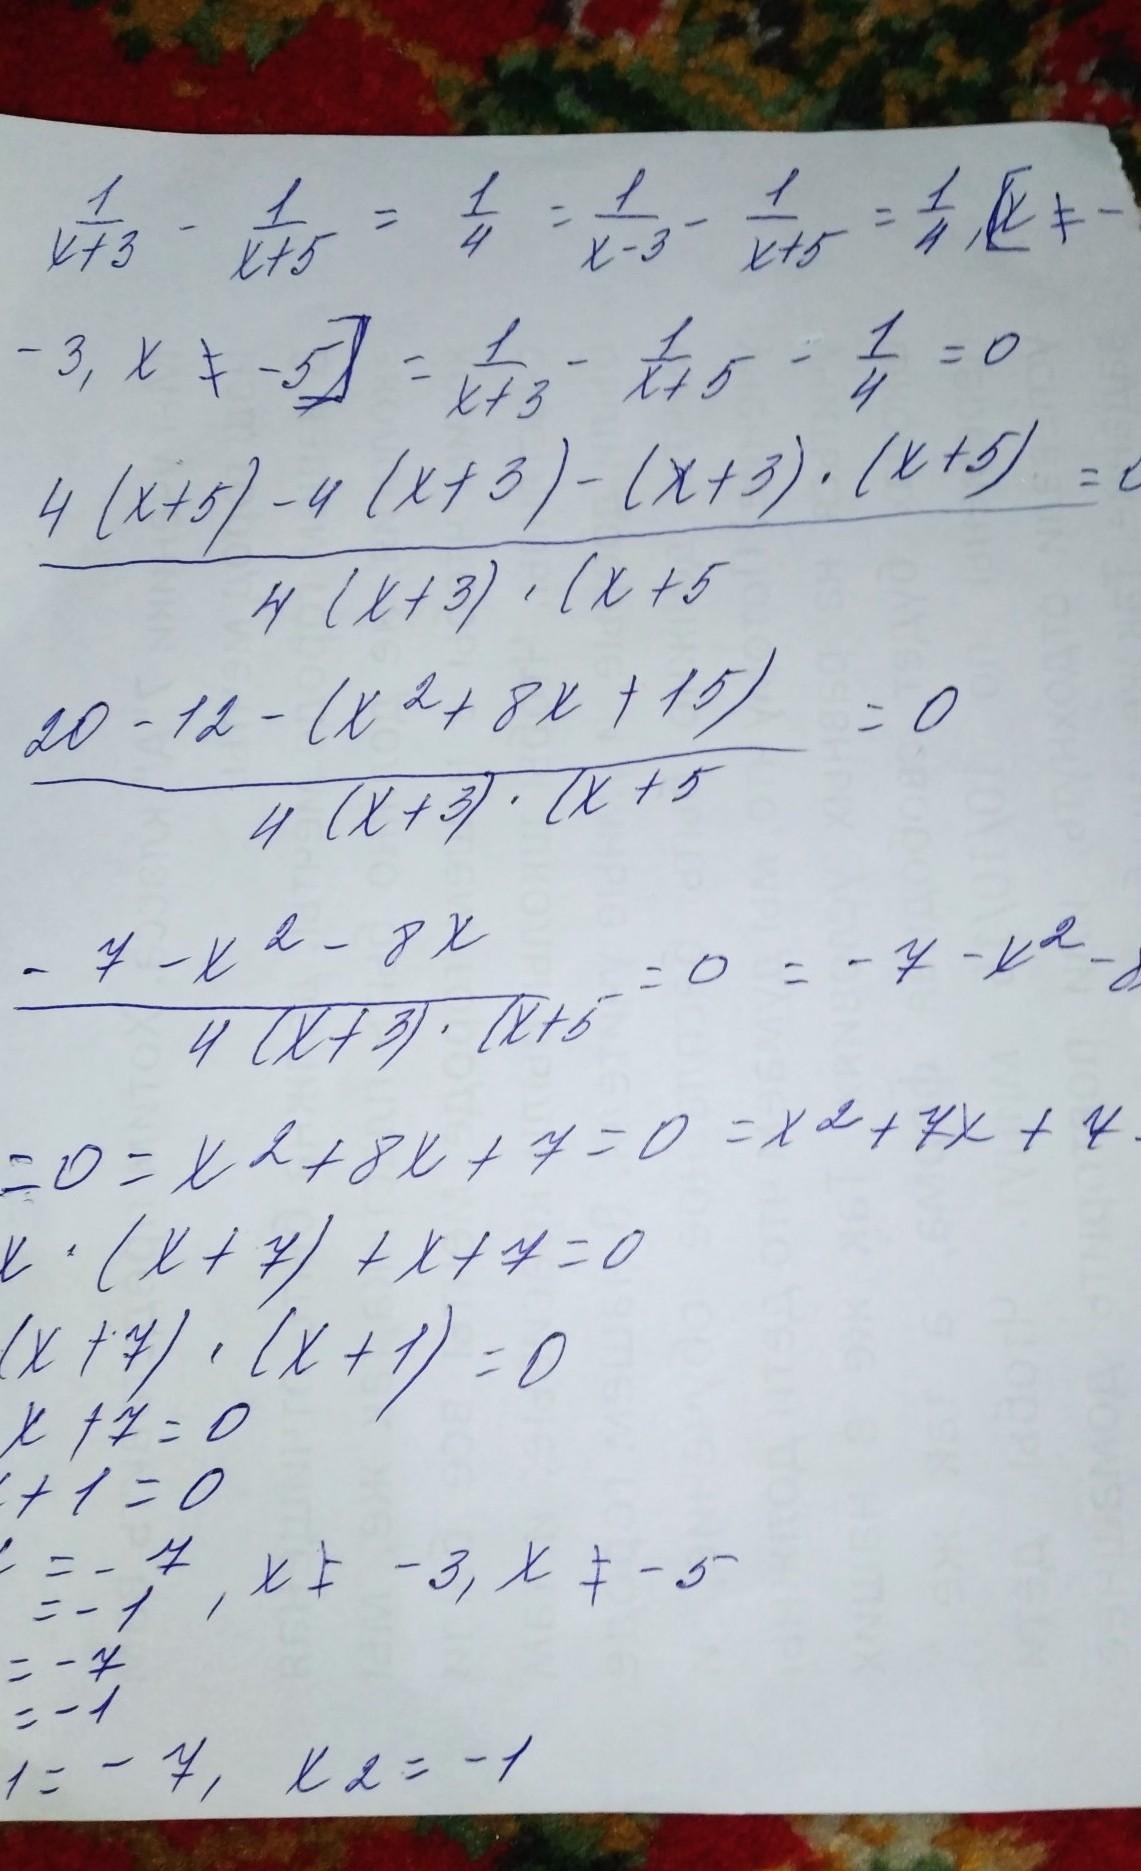 1/(x+3) - 1/(x+5) = 1/4 = 1/(x-3) - 1/(x+5) = 1/4, [x ≠ -
-3, x ≠ -5] = 1/(x+3) - 1/(x+5) - 1/4 = 0
(4(x+5) - 4(x+3) - (x+3) · (x+5))/(4(x+3) · (x+5) = 0
(20 - 12 - (x² + 8x + 15))/(4(x+3) · (x+5) = 0
(-7 - x² - 8x)/(4(x+3) · (x+5) = 0 = -7 - x² - 8
= 0 = x² + 8x + 7 = 0 = x² + 7x + 7
x · (x+7) + x + 7 = 0
(x+7) · (x+1) = 0
x + 7 = 0
+ 1 = 0
= -7
= -1 , x ≠ -3, x ≠ -5
= -7
= -1
1 = -7, x2 = -1